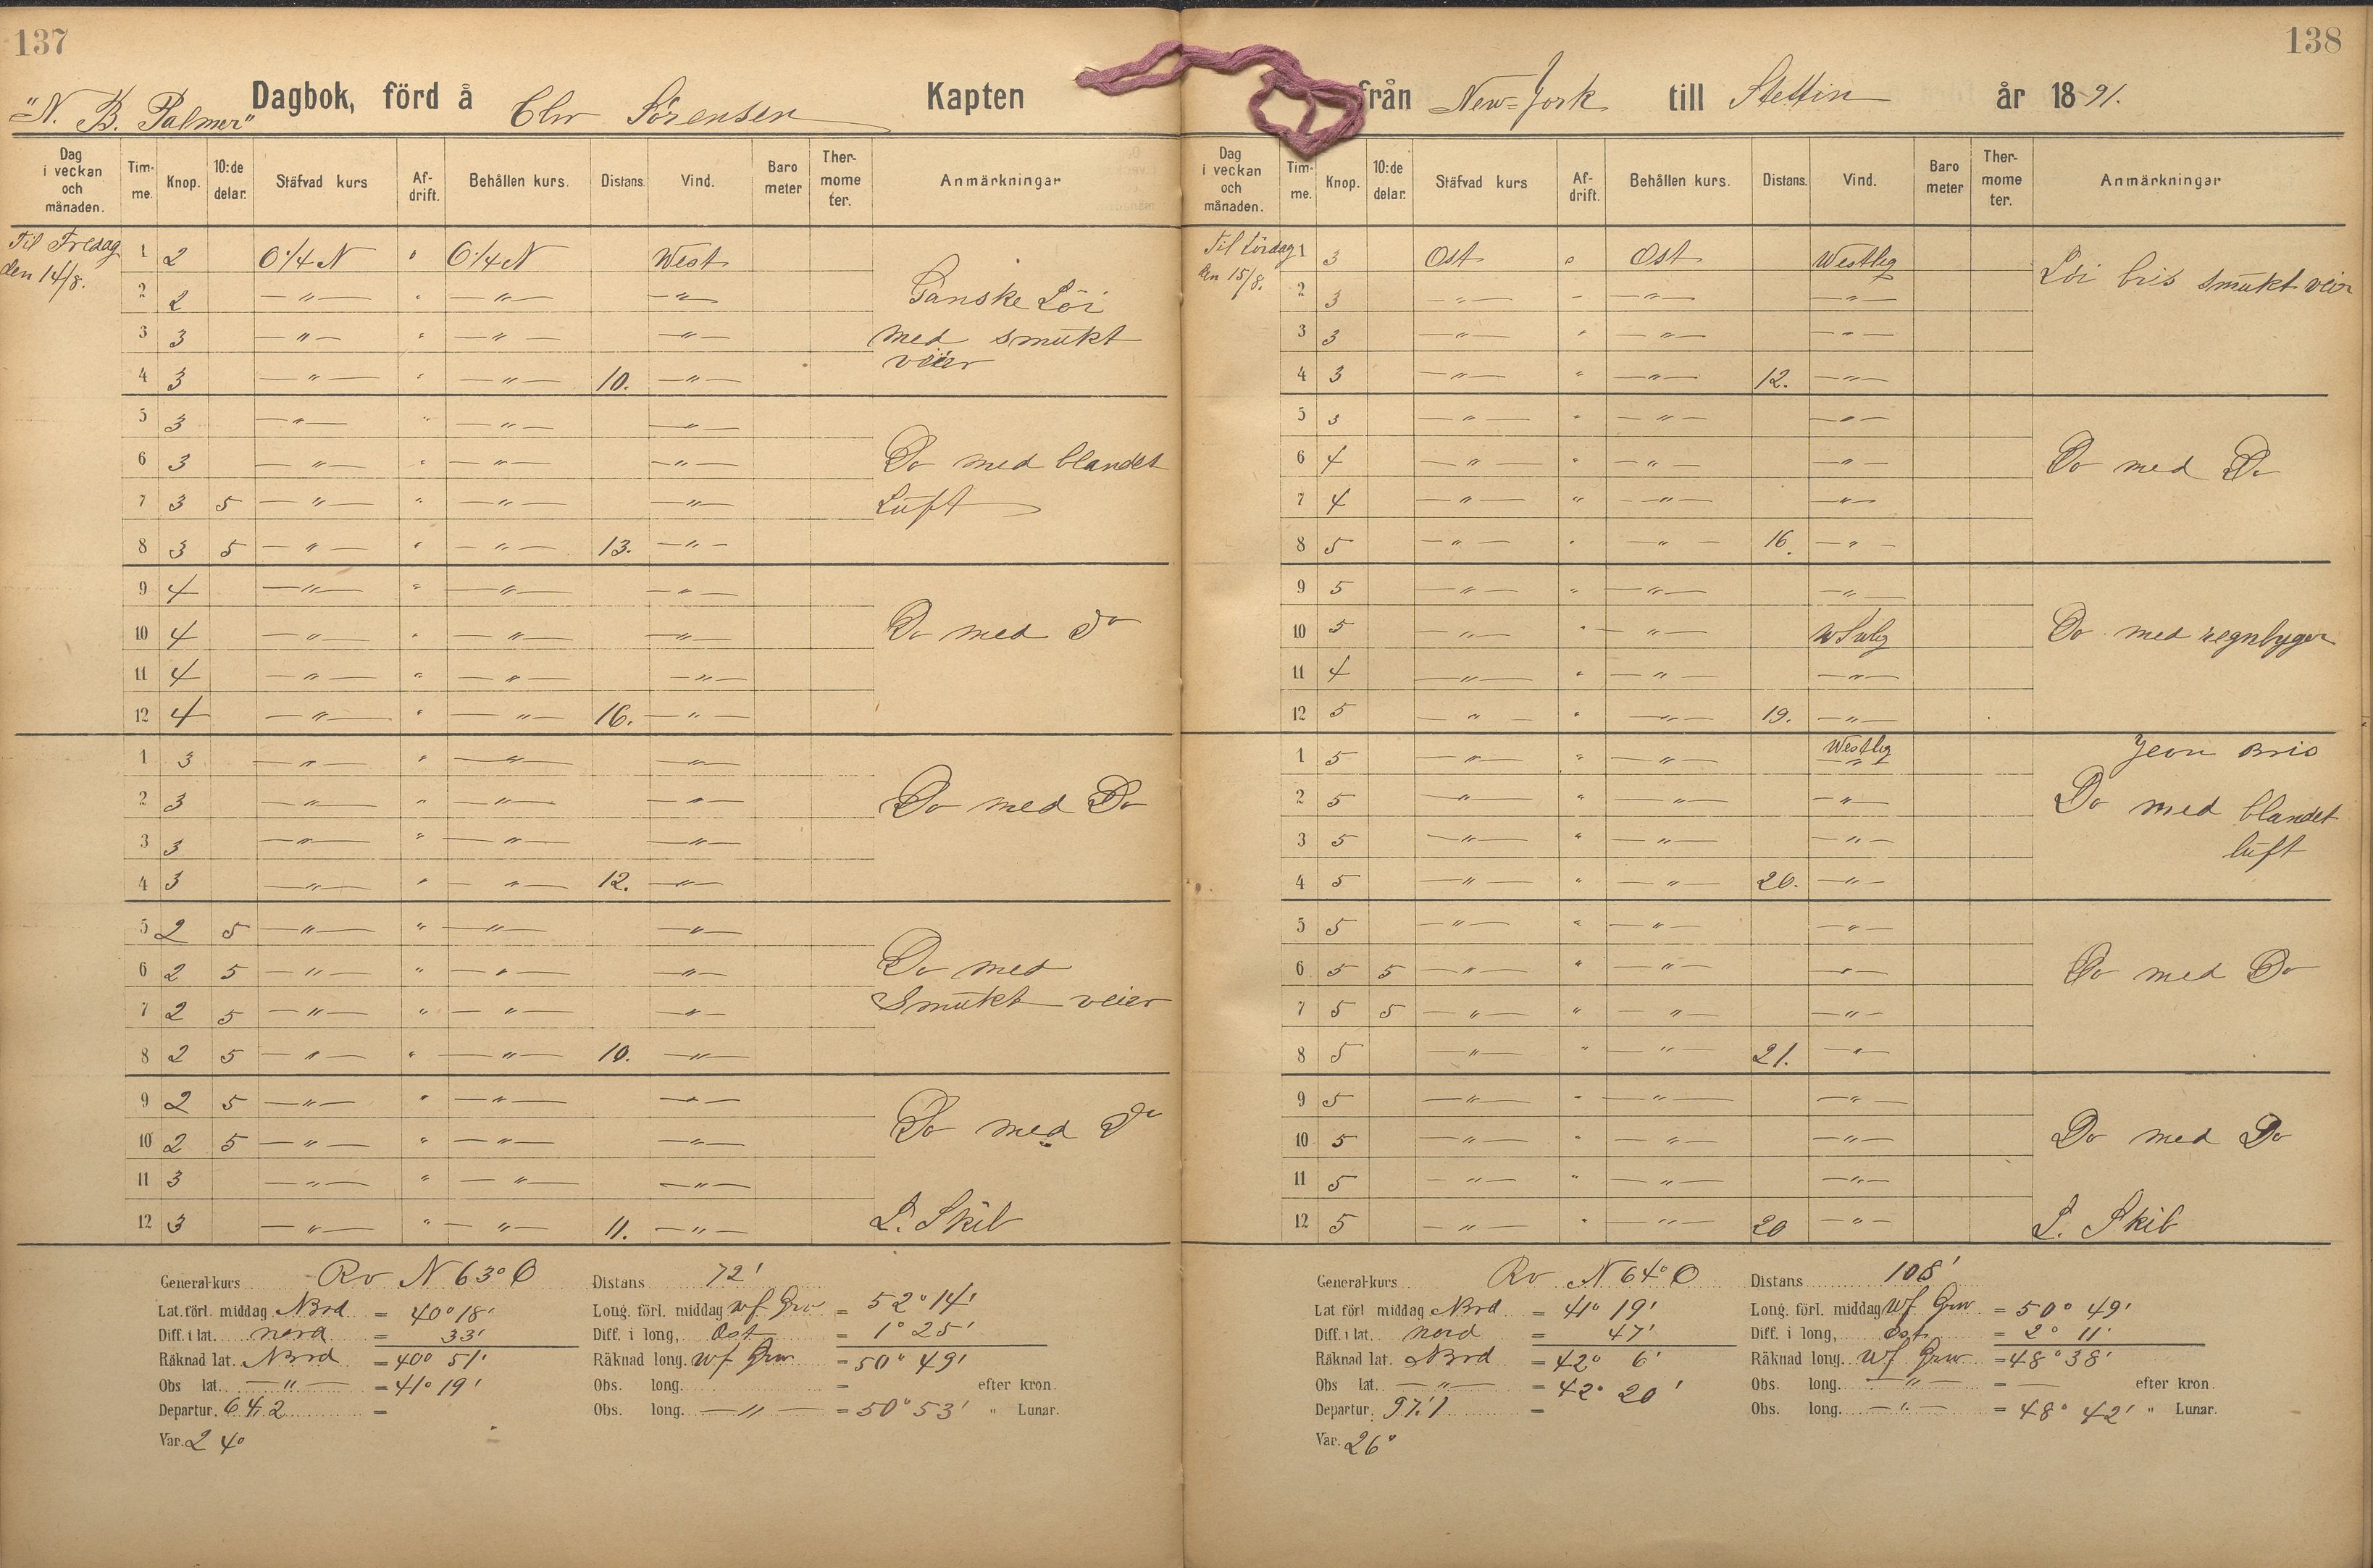 137
"N. B. Palmer" Dagbok, förd å Chr Sörensen Kapten
Dag i veckan och månaden. Tim-me. Knop. 10:de delar. Stäfvad kurs Af-drift. Behållen kurs. Distans. Vind. Baro meter Ther-mome ter. Anmärkningar
Til Fredag den 14/8. 1 2 O 1/4 N " O 1/4 N West
2 2 — " — " — " — — " — Ganske Löi
3 3 — " — " — " — — " — med smukt
4 3 — " — " — " — 10. — " — veier
5 3 — " — " — " — — " —
6 3 — " — " — " — — " — Do med blandet
7 3 5 — " — " — " — — " — Luft
8 3 5 — " — " — " — 13. — " —
9 4 — " — " — " — — " —
10 4 — " — " — " — — " — Do med do
11 4 — " — " — " — — " —
12 4 — " — " — " — 16. — " —
1 3 — " — " — " — — " —
2 3 — " — " — " — — " — Do med Do
3 3 — " — " — " — — " —
4 3 — " — " — " — 12. — " —
5 2 5 — " — " — " — — " —
6 2 5 — " — " — " — — " — Do med
7 2 5 — " — " — " — — " — Smukt veier
8 2 5 — " — " — " — 10. — " —
9 2 5 — " — " — " — — " —
10 2 5 — " — " — " — — " — Do med do
11 3 — " — " — " — — " —
12 3 — " — " — " — 11. — " — L. Skib
General-kurs Rv N 63° O Distans 72'
Lat. förl. middag Nord = 40° 18' Long. förl. middag Wf Grw = 52° 14'
Diff. i lat. nord = 33' Diff. i long, Ost = 1° 25'
Räknad lat. Nord = 40° 51' Räknad long. Wf Grw = 50° 49'
Obs lat. — " — = 41° 19' Obs. long. = efter kron.
Departur. 64,2 = Obs. long. — " — = 50° 53' " Lunar.
Var. 24°
138
från New-York till Stettin år 1891.
Dag i veckan och månaden. Tim-me. Knop. 10:de delar. Stäfvad kurs Af-drift. Behållen kurs. Distans. Vind. Baro meter Ther-mome ter. Anmärkningar
Til Lördag den 15/8. 1 3 Ost " Ost Westlig Löi bris smukt veir
2 3 — " — " — " — — " —
3 3 — " — " — " — — " —
4 3 — " — " — " — 12. — " —
5 3 — " — " — " — — " —
6 4 — " — " — " — — " — Do med Do
7 4 — " — " — " — — " —
8 5 — " — " — " — 16. — " —
9 5 — " — " — " — — " —
10 5 — " — " — " — Do med regnbyger
11 4 — " — " — " — — " —
12 5 — " — " — " — 19. — " —
1 5 — " — " — " — Westlig Jevn Bris
2 5 — " — " — " — — " — Do med blandet
3 5 — " — " — " — — " — luft
4 5 — " — " — " — 20. — " —
5 5 — " — " — " — — " —
6 5 5 — " — " — " — — " — Do med Do
7 5 5 — " — " — " — — " —
8 5 — " — " — " — 21. — " —
9 5 — " — " — " — — " —
10 5 — " — " — " — — " — Do med Do
11 5 — " — " — " — — " —
12 5 — " — " — " — 20 — " — L. Skib
General-kurs Rv N 64° O Distans 108'
Lat förl middag Nord = 41° 19' Long. förl. middag Wf Grw = 50° 49'
Diff. i lat. nord = 47' Diff. i long, Ost = 2° 11'
Räknad lat. Nord = 42° 6' Räknad long. Wf Grw = 48° 38'
Obs lat. — " — = 42° 20' Obs. long. — " — = — efter kron.
Departur. 97,1 = Obs. long. — " — = 48° 42' " Lunar.
Var. 26°